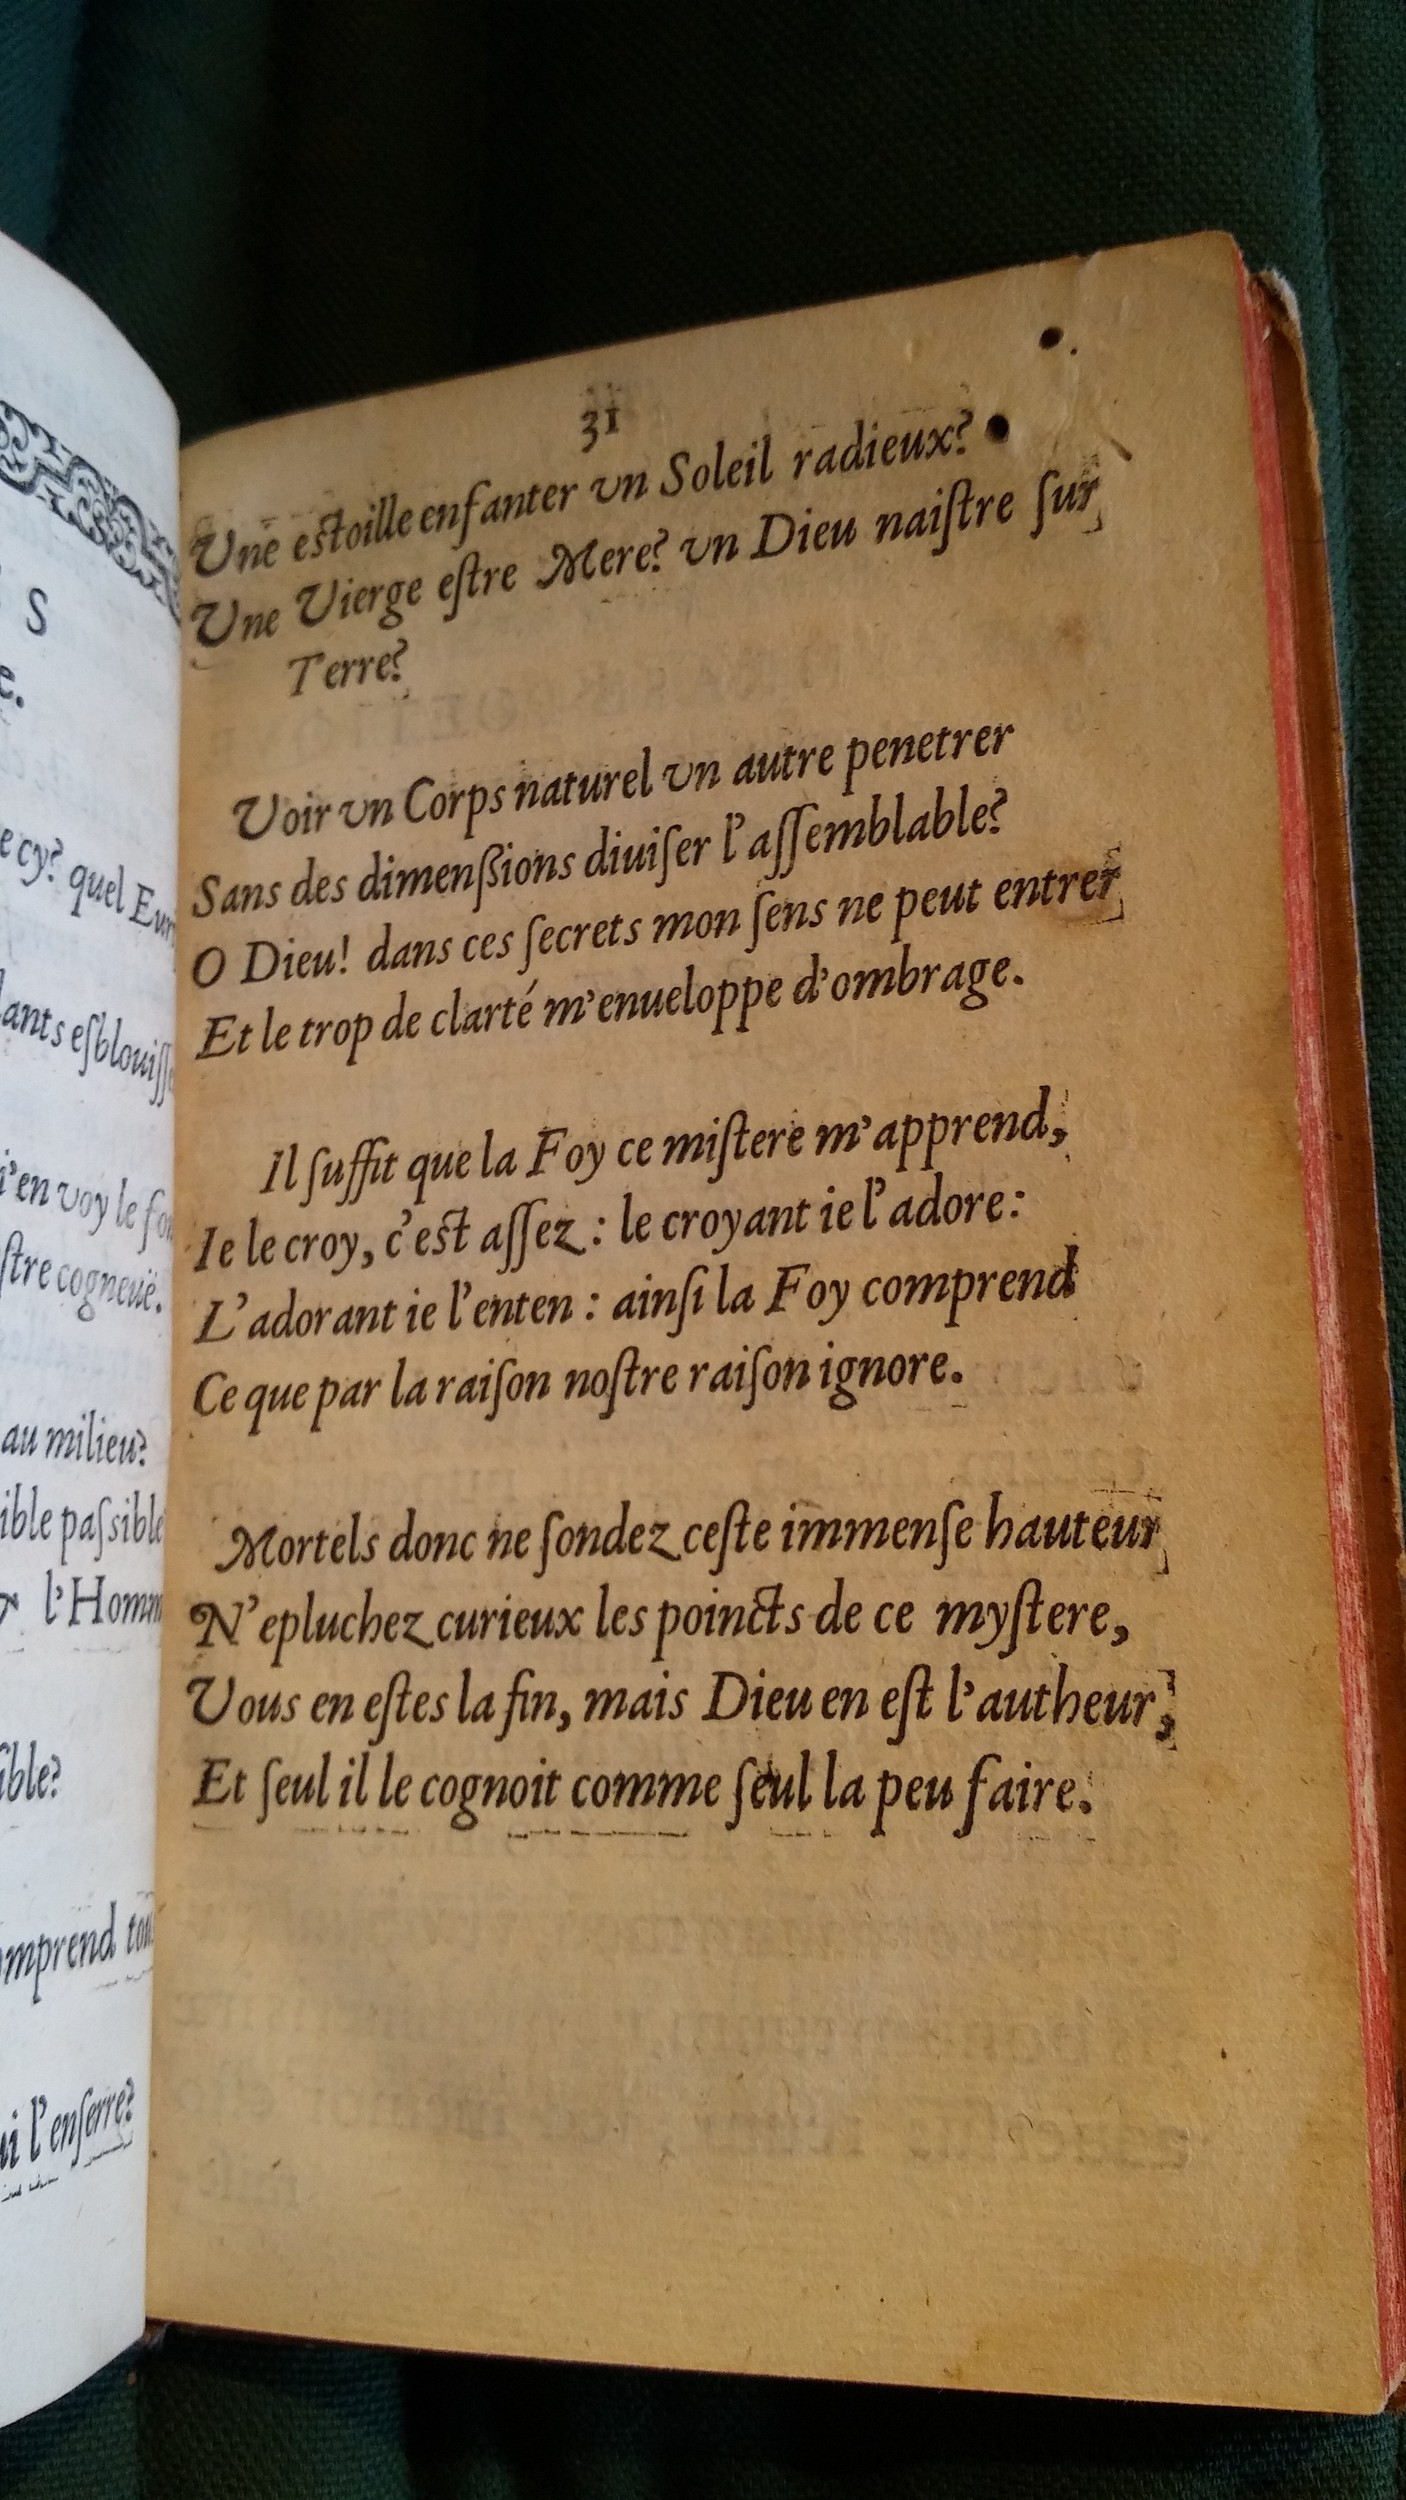 S
e.
e cy? quel Eur
lants esblouiſſ
i'en voy le fon
ſtre cogneuë.
au milieu?
ible paſsible
l'Homm
ible?
omprend tou
ui l'enſerre?
31
Une estoille enfanter vn Soleil radieux?
Une Vierge eſtre Mere? vn Dieu naiſtre ſur
Terre?
Voir vn Corps naturel vn autre penetrer
Sans des dimenſsions diuiſer l'aſſemblable?
O Dieu! dans ces ſecrets mon ſens ne peut entrer
Et le trop de clarté m'enueloppe d'ombrage.
Il ſuffit que la Foy ce miſtere m'apprend,
Ie le croy, c'est aſſez : le croyant ie l'adore :
L'adorant ie l'enten : ainſi la Foy comprend
Ce que par la raiſon noſtre raiſon ignore.
Mortels donc ne ſondez ceſte immenſe hauteur
N'epluchez curieux les poincts de ce myſtere,
Vous en eſtes la fin, mais Dieu en eſt l'autheur,
Et ſeul il le cognoit comme ſeul la peu faire.